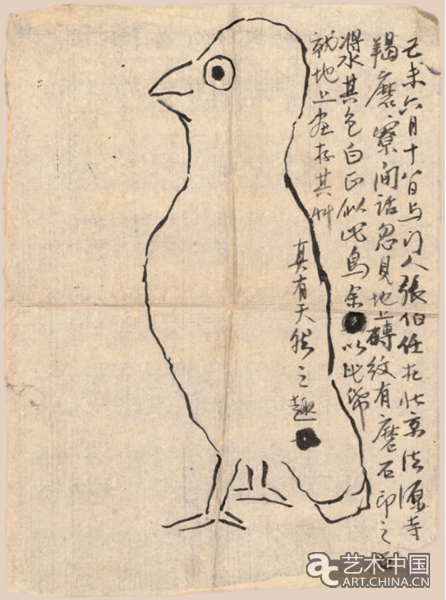 己未六月十八日与门人張伯任在北京法源寺
羯磨寮间話忽見地上磚紋有磨石印之石
漿其色白正似此鳥余以此紙
就地上画存其艸
真有天然之趣
艺术中国
ART.CHINA.CN